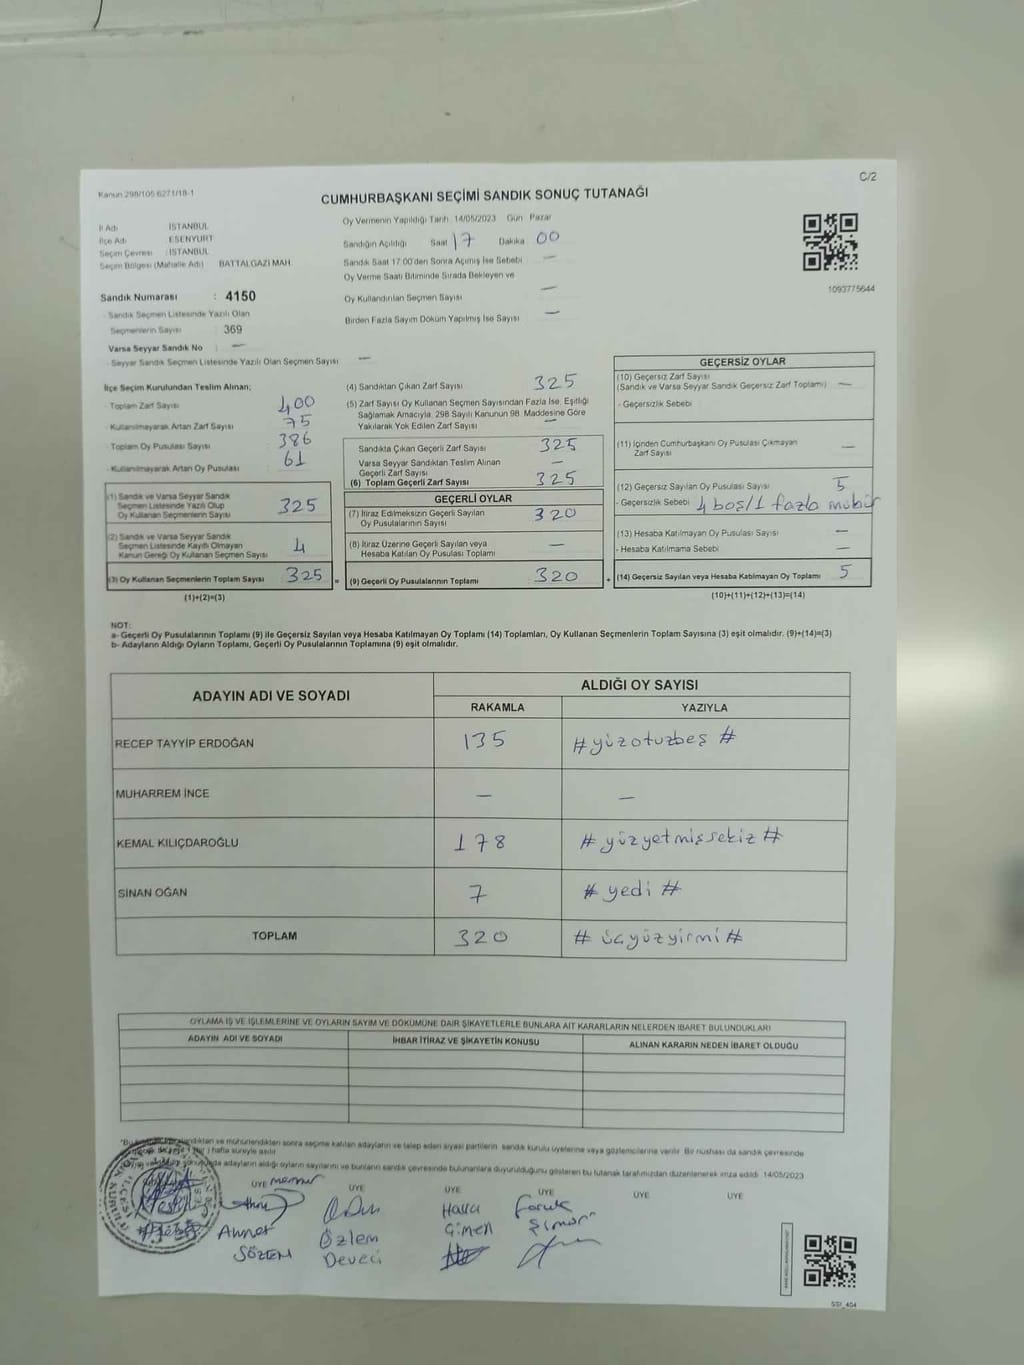 Kanun 298/105 6271/18-1
C/2
CUMHURBAŞKANI SEÇİMİ SANDIK SONUÇ TUTANAĞI
İl Adı : İSTANBUL
İlçe Adı : ESENYURT
Seçim Çevresi : İSTANBUL
Seçim Bölgesi (Mahalle Adı) : BATTALGAZİ MAH.
Sandık Numarası : 4150
- Sandık Seçmen Listesinde Yazılı Olan
Seçmenlerin Sayısı : 369
Varsa Seyyar Sandık No : —
- Seyyar Sandık Seçmen Listesinde Yazılı Olan Seçmen Sayısı —
Oy Vermenin Yapıldığı Tarih 14/05/2023 Gün Pazar
Sandığın Açıldığı Saat 17 Dakika 00
Sandık Saat 17:00'den Sonra Açılmış İse Sebebi —
Oy Verme Saati Bitiminde Sırada Bekleyen ve
Oy Kullandırılan Seçmen Sayısı —
Birden Fazla Sayım Döküm Yapılmış İse Sayısı —
1093775644
İlçe Seçim Kurulundan Teslim Alınan;
- Toplam Zarf Sayısı 400
- Kullanılmayarak Artan Zarf Sayısı 75
- Toplam Oy Pusulası Sayısı 386
- Kullanılmayarak Artan Oy Pusulası 61
(1) Sandık ve Varsa Seyyar Sandık
Seçmen Listesinde Yazılı Olup
Oy Kullanan Seçmenlerin Sayısı 325
(2) Sandık ve Varsa Seyyar Sandık
Seçmen Listesinde Kayıtlı Olmayan
Kanun Gereği Oy Kullanan Seçmen Sayısı 4
(3) Oy Kullanan Seçmenlerin Toplam Sayısı 325 =
(1)+(2)=(3)
(4) Sandıktan Çıkan Zarf Sayısı 325
(5) Zarf Sayısı Oy Kullanan Seçmen Sayısından Fazla İse, Eşitliği
Sağlamak Amacıyla, 298 Sayılı Kanunun 98. Maddesine Göre
Yakılarak Yok Edilen Zarf Sayısı —
Sandıkta Çıkan Geçerli Zarf Sayısı 325
Varsa Seyyar Sandıktan Teslim Alınan
Geçerli Zarf Sayısı —
(6) Toplam Geçerli Zarf Sayısı 325
GEÇERLİ OYLAR
(7) İtiraz Edilmeksizin Geçerli Sayılan
Oy Pusulalarının Sayısı 320
(8) İtiraz Üzerine Geçerli Sayılan veya
Hesaba Katılan Oy Pusulası Toplamı —
(9) Geçerli Oy Pusulalarının Toplamı 320 +
GEÇERSİZ OYLAR
(10) Geçersiz Zarf Sayısı
(Sandık ve Varsa Seyyar Sandık Geçersiz Zarf Toplamı) —
- Geçersizlik Sebebi
(11) İçinden Cumhurbaşkanı Oy Pusulası Çıkmayan
Zarf Sayısı —
(12) Geçersiz Sayılan Oy Pusulası Sayısı 5
- Geçersizlik Sebebi 4 boş/1 fazla mühür
(13) Hesaba Katılmayan Oy Pusulası Sayısı —
- Hesaba Katılmama Sebebi —
(14) Geçersiz Sayılan veya Hesaba Katılmayan Oy Toplamı 5
(10)+(11)+(12)+(13)=(14)
NOT:
a- Geçerli Oy Pusulalarının Toplamı (9) ile Geçersiz Sayılan veya Hesaba Katılmayan Oy Toplamı (14) Toplamları, Oy Kullanan Seçmenlerin Toplam Sayısına (3) eşit olmalıdır. (9)+(14)=(3)
b- Adayların Aldığı Oyların Toplamı, Geçerli Oy Pusulalarının Toplamına (9) eşit olmalıdır.
ADAYIN ADI VE SOYADI ALDIĞI OY SAYISI
RAKAMLA YAZIYLA
RECEP TAYYİP ERDOĞAN 135 #yüzotuzbeş#
MUHARREM İNCE — —
KEMAL KILIÇDAROĞLU 178 #yüzyetmişsekiz#
SİNAN OĞAN 7 #yedi#
TOPLAM 320 #üçyüzyirmi#
OYLAMA İŞ VE İŞLEMLERİNE VE OYLARIN SAYIM VE DÖKÜMÜNE DAİR ŞİKAYETLERLE BUNLARA AİT KARARLARIN NELERDEN İBARET BULUNDUKLARI
ADAYIN ADI VE SOYADI İHBAR İTİRAZ VE ŞİKAYETİN KONUSU ALINAN KARARIN NEDEN İBARET OLDUĞU
ve mühürlendikten sonra seçime katılan adayların ve talep eden siyasi partilerin sandık kurulu üyelerine veya gözlemcilerine verilir. Bir nüshası da sandık çevresinde
hafta süreyle asılır
adayların aldığı oyların sayılarını ve bunların sandık çevresinde bulunanlara duyurulduğunu gösteren bu tutanak tarafımızdan düzenlenerek imza edildi. 14/05/2023
ÜYE memur ÜYE ÜYE ÜYE ÜYE ÜYE
Ahmet SÖZEN
Özlem Deveci
Gimen
Faruk
SSİ_404